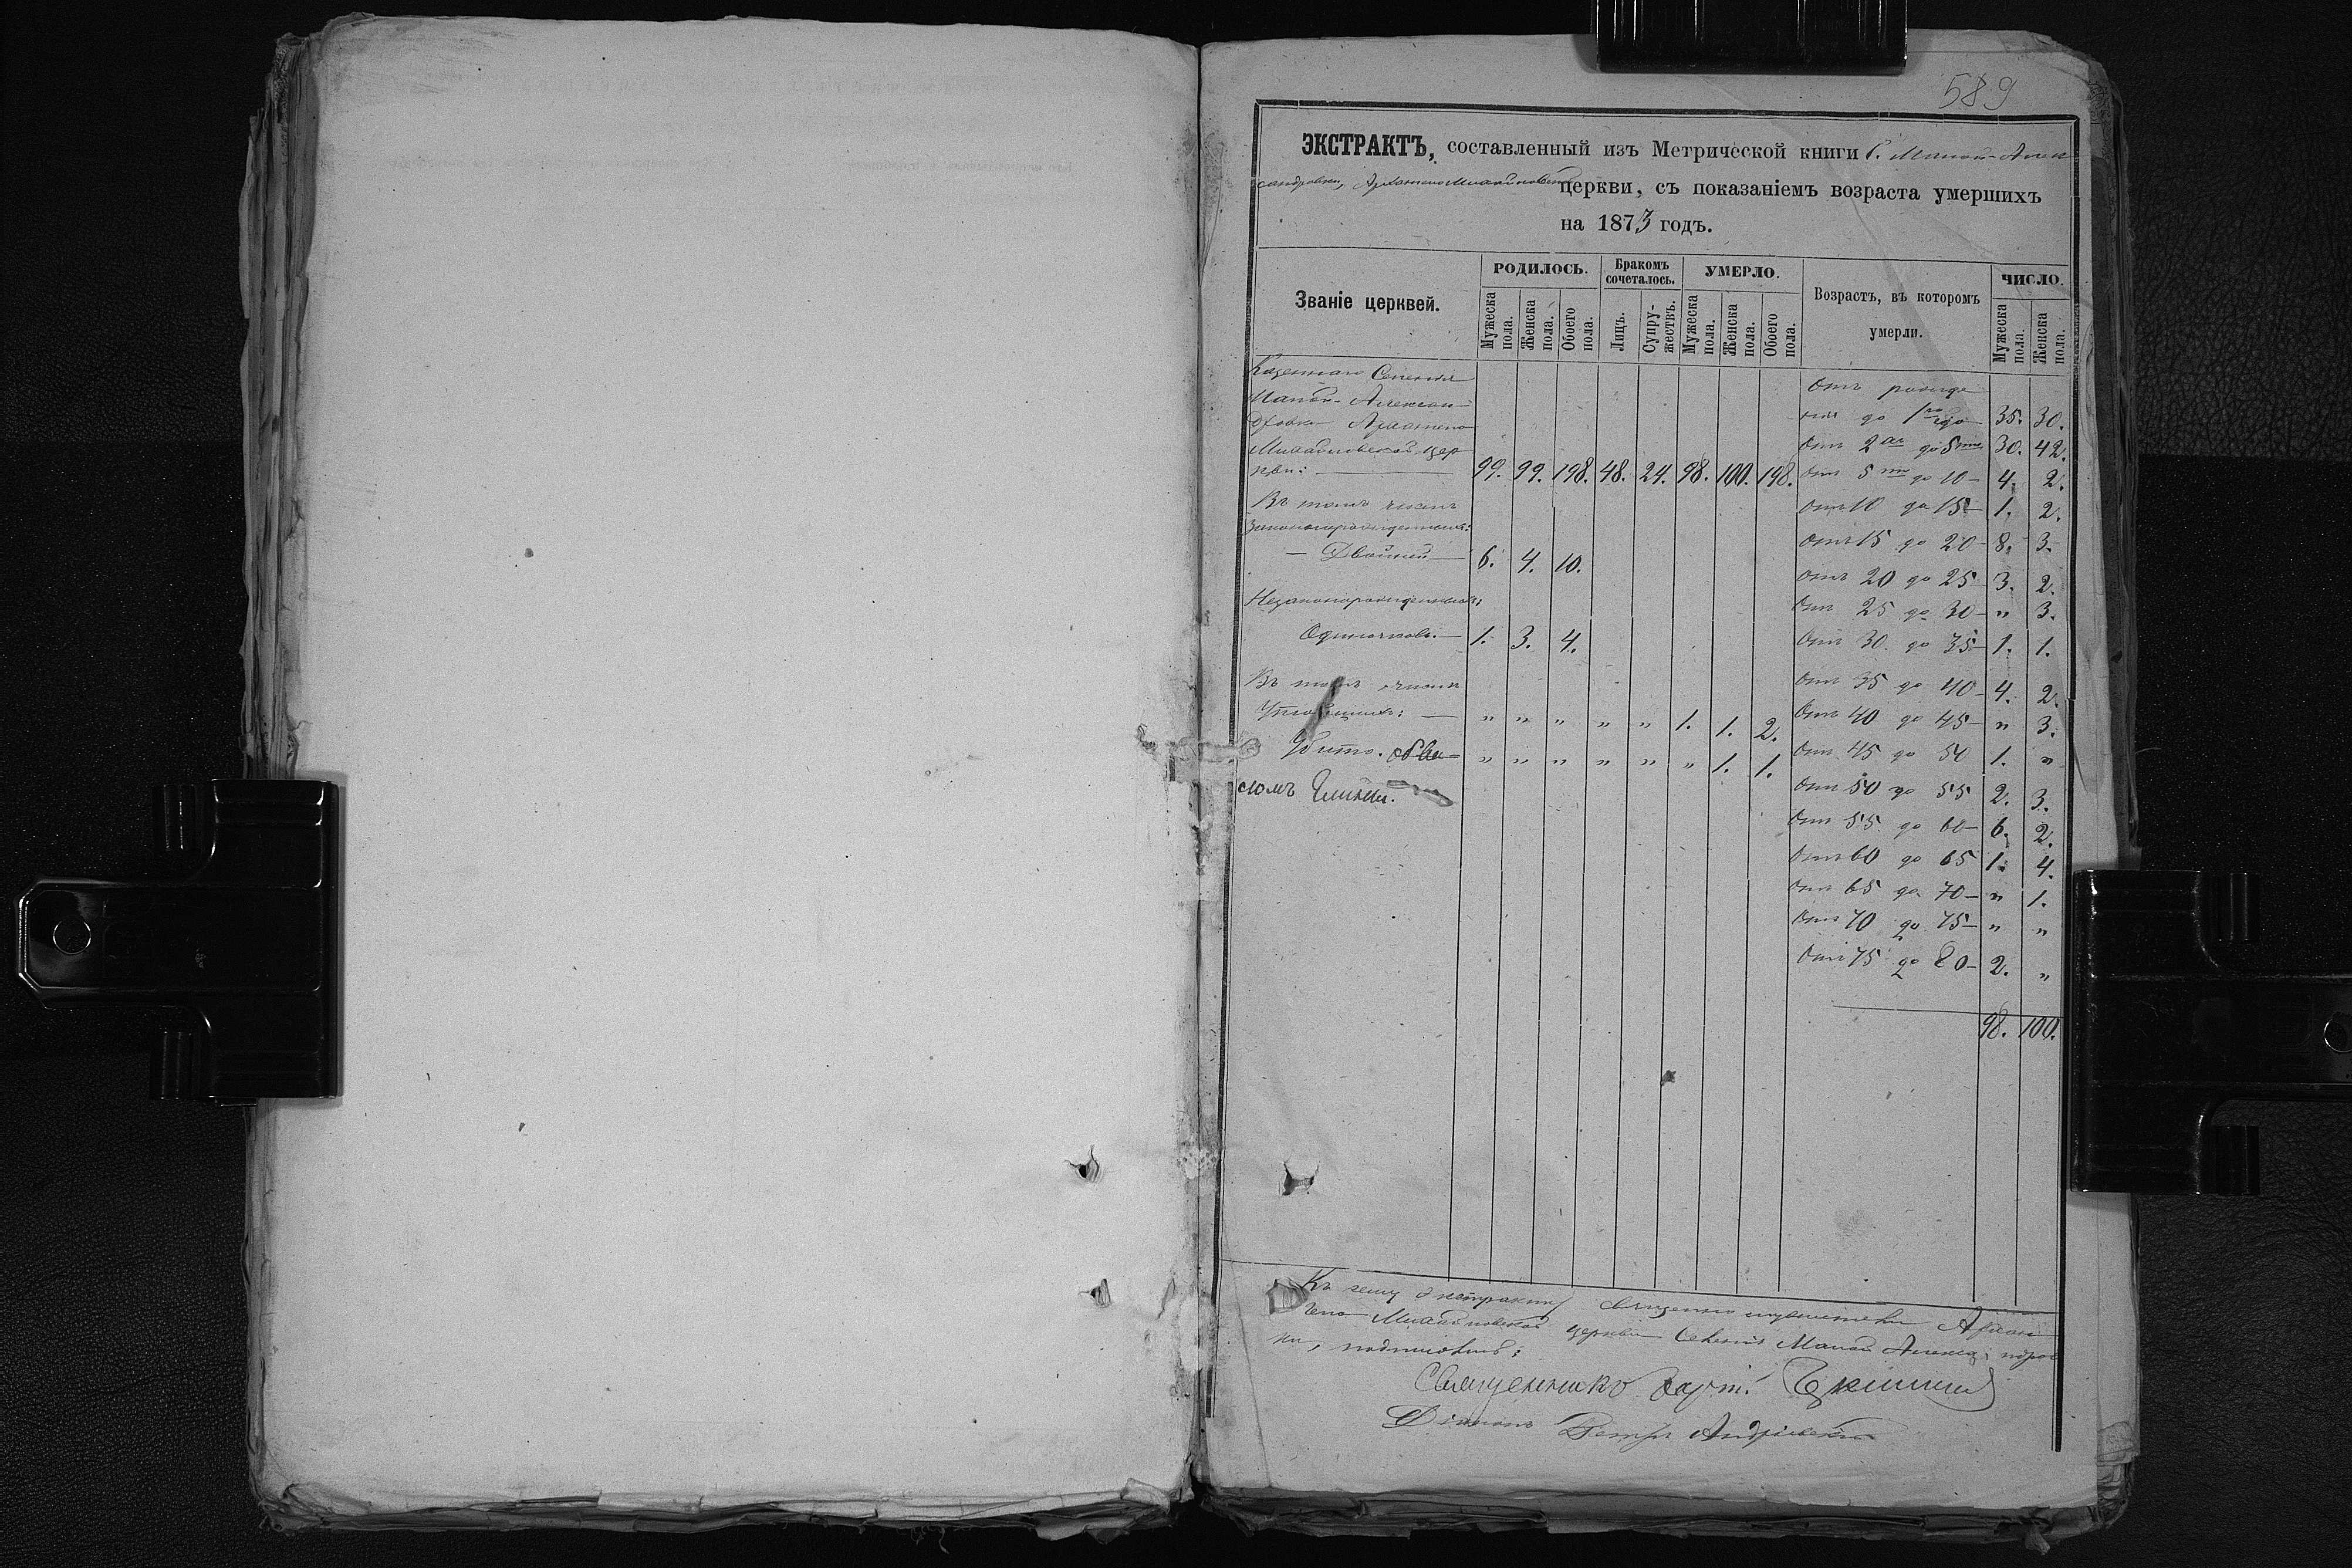 589
ЭКСТРАКТЪ, составленный изъ Метрической книги С. Малой-Алек
сандровки, Архангело Михайловской церкви, съ показаніемъ возраста умершихъ
на 1873 годъ.
Званіе церквей.
РОДИЛОСЬ.
Мужеска пола.
Женска пола.
Обоего пола.
Бракомъ сочеталось.
Лицъ.
Супружествъ.
УМЕРЛО.
Мужеска пола.
Женска пола.
Обоего пола.
Возрастъ, въ котором
умерли.
ЧИСЛО.
Мужеска пола.
Женска пола.
Казеннаго Селенія
Малой-Алексан
дровки Архангело
Михайловской цер
кви: 99. 99. 198. 48. 24. 98. 100. 198.
Въ томъ числѣ
Законнорожденныхъ:
— Двойней — 6. 4. 10.
Незаконнорожденныхъ:
Одиночковъ. — 1. 3. 4.
Въ томъ числѣ
" " " " " 1. 1. 2.
Убито " " " " " " 1. 1.
сомъ глины.
Отъ рожде
нія до 1го года 35. 30.
Отъ 2 до 5 30. 42.
Отъ 5 до 10 — 4. 2.
Отъ 10 до 15 — 1. 2.
Отъ 15 до 20 — 8. 3.
Отъ 20 до 25 3. 2.
Отъ 25 до 30 — " 3.
Отъ 30 до 35 — 1. 1.
Отъ 35 до 40 — 4. 2.
Отъ 40 до 45 — " 3.
Отъ 45 до 50 1. "
Отъ 50 до 55 2. 3.
Отъ 55 до 60 — 6. 2.
Отъ 60 до 65 1. 4.
Отъ 65 до 70 — " 1.
Отъ 70 до 75 — " "
Отъ 75 до 80 — 2. "
98. 100.
Къ сему экстракту Священно служители Архан
гело Михайловской церкви Селенія Малой Александров
ки, подписались:
Священникъ
Діаконъ Петръ Андріевскій